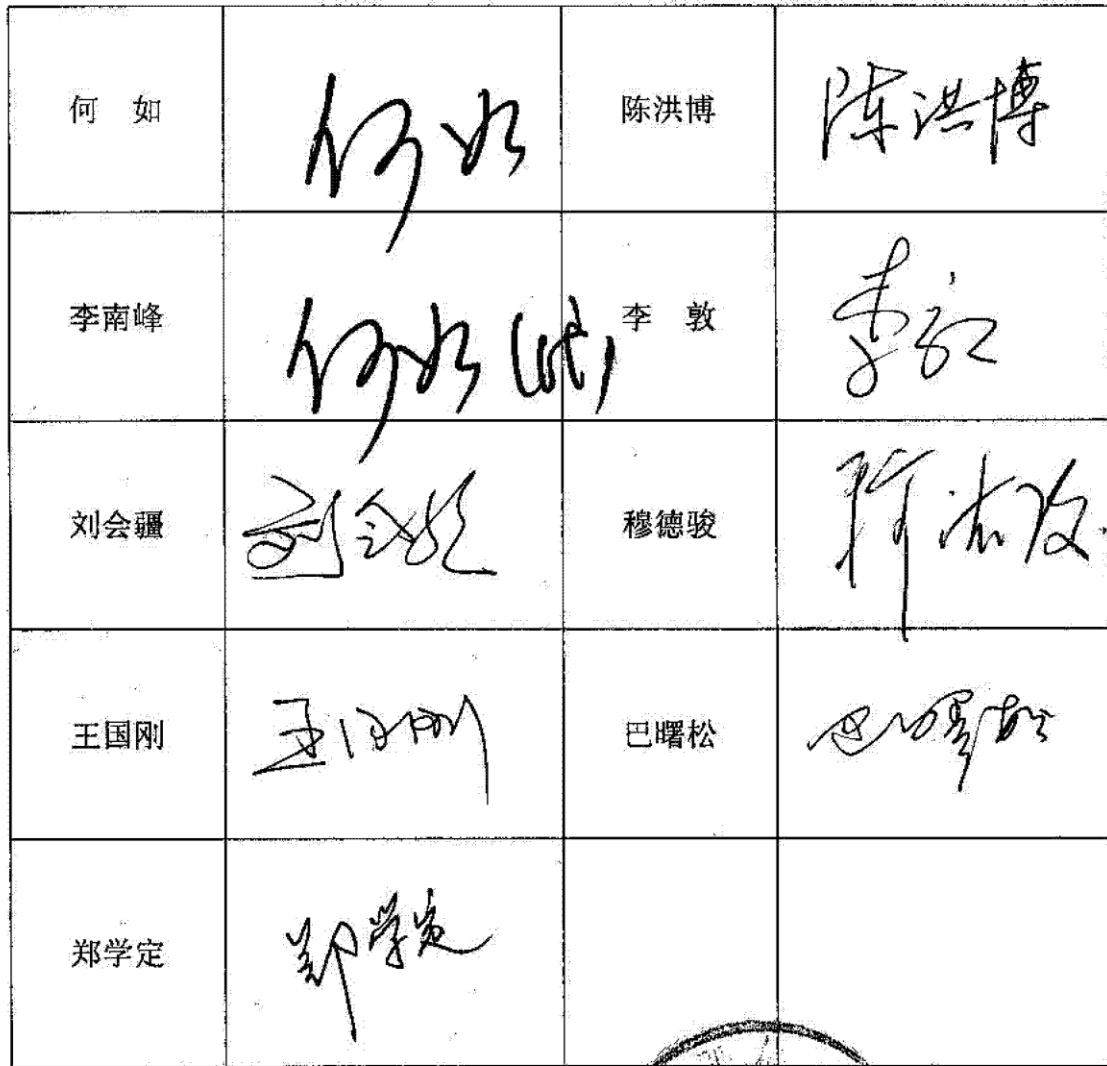 何 如 何如 陈洪博 陈洪博
李南峰 何如(代) 李 敦
刘会疆 刘会疆 穆德骏
王国刚 王国刚 巴曙松 巴曙松
郑学定 郑学定